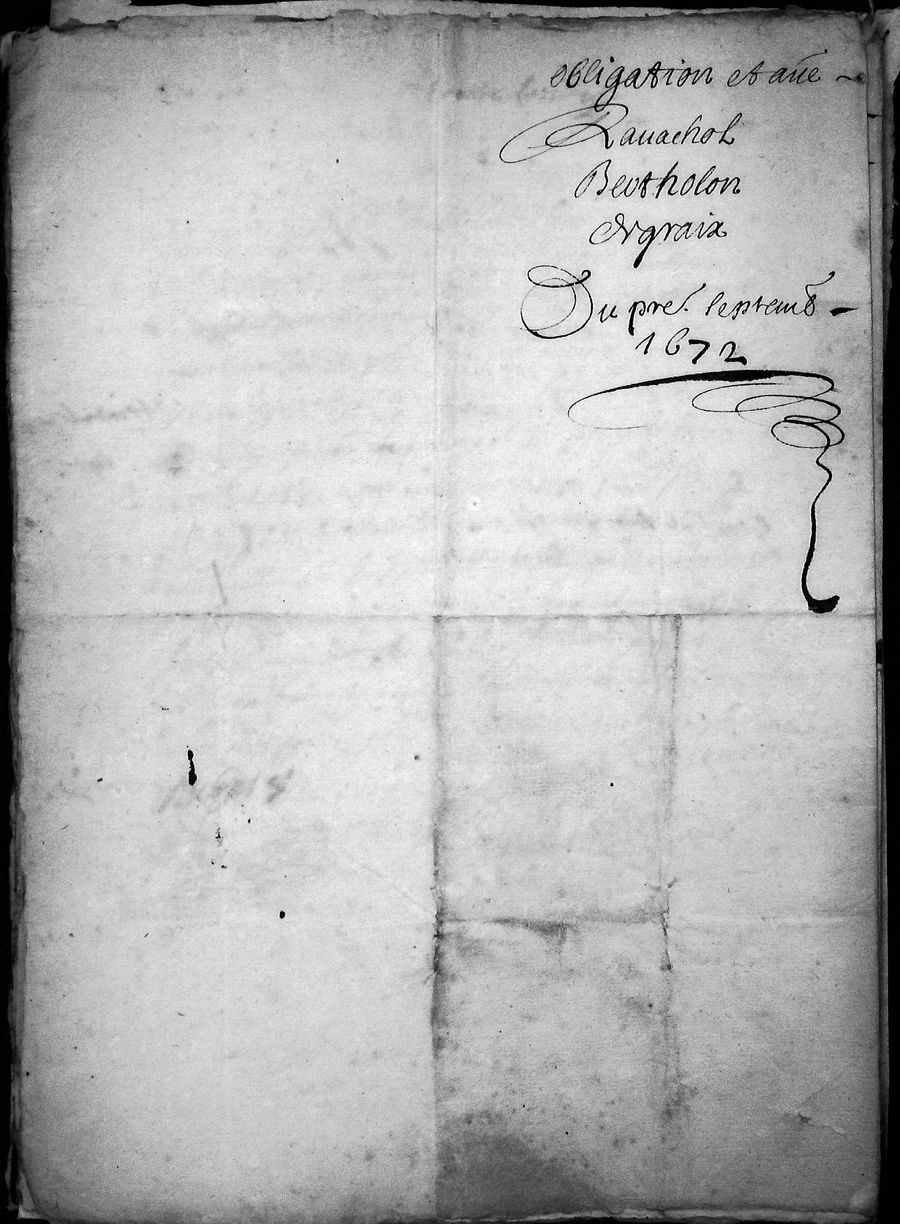 obligation et aûe
Rauachol
Bertholon
Argraix
Du pre.r septemb
1672